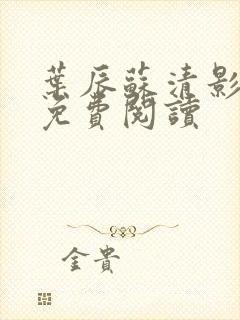 葉辰蘇清影
免費閱讀
金貴